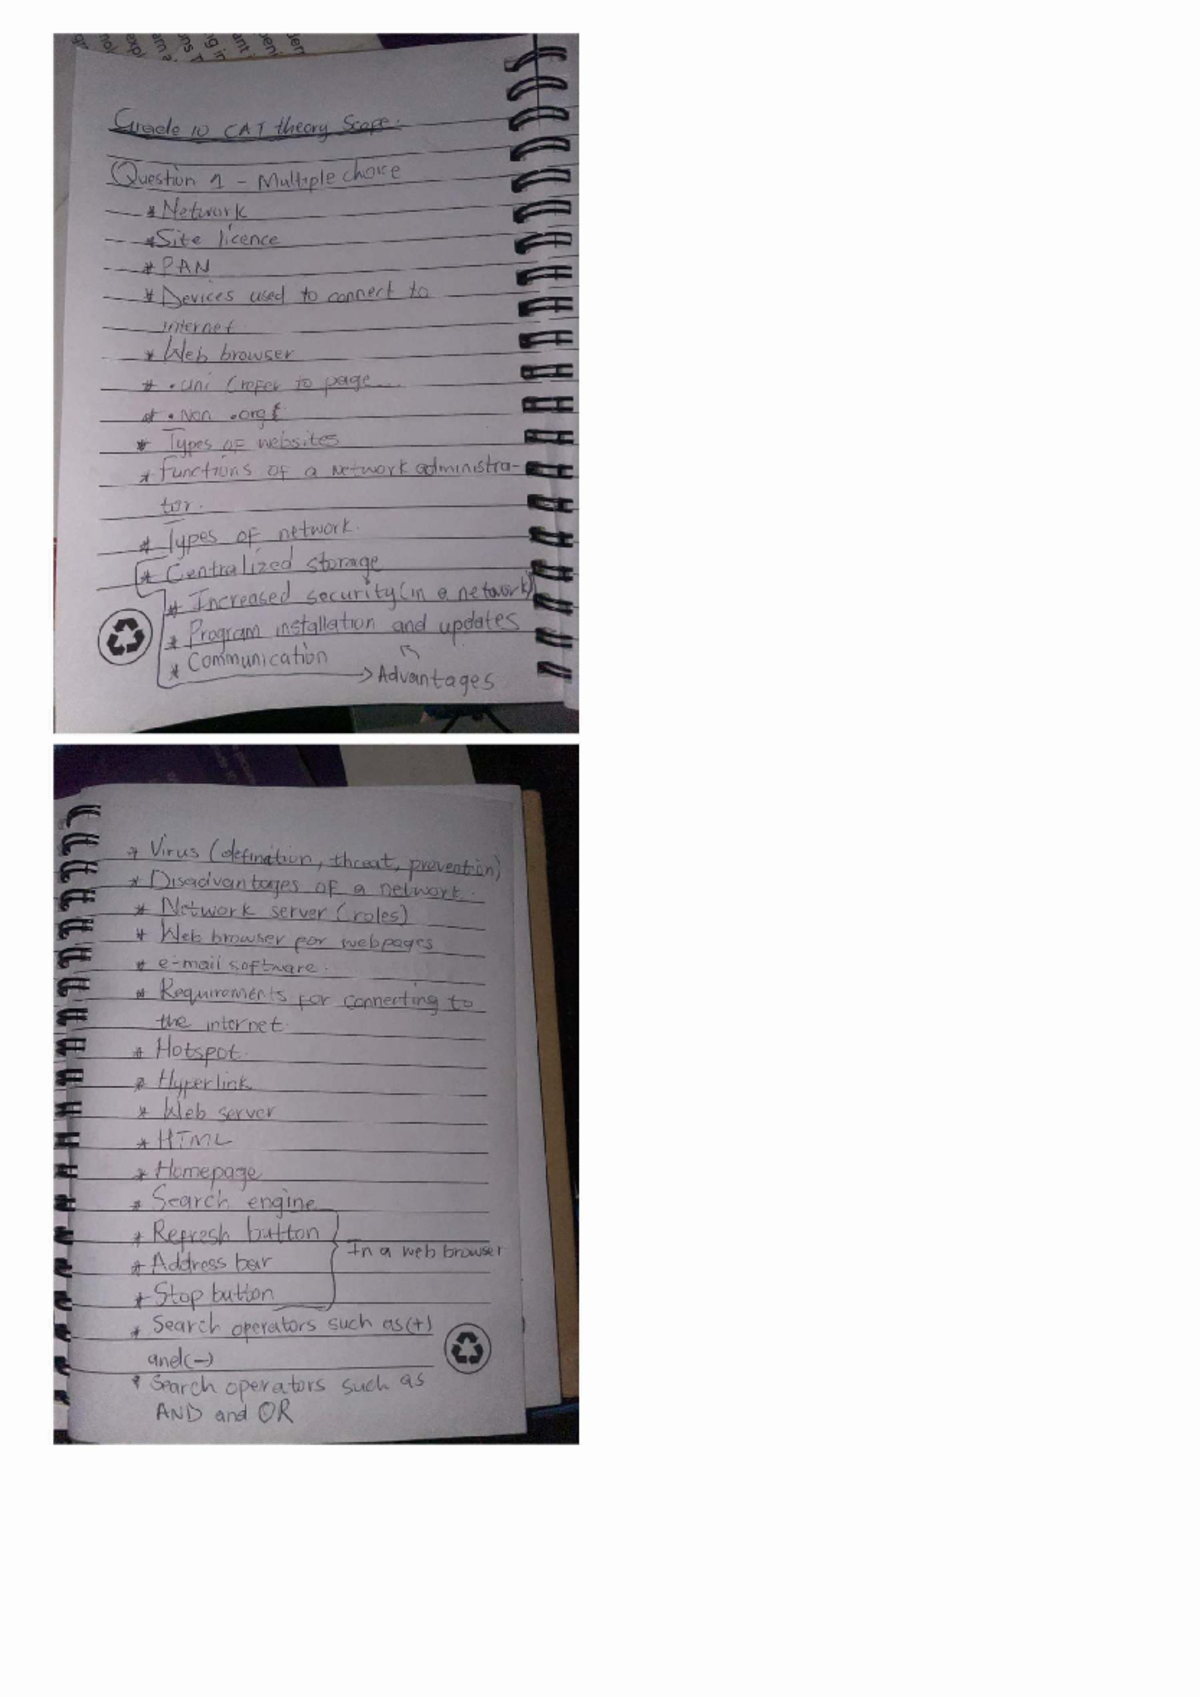 Grade 10 CAT theory Scope.
Question 1 - Multiple choice
* Network
* Site licence
* PAN
* Devices used to connect to
internet.
* Web browser
* .uni (refer to page...
* .Non .org
* Types of websites
* Functions of a network administra-
tor.
* Types of network.
* Centralized storage
* Increased security (in a network)
* Program installation and updates
* Communication
→ Advantages
* Virus (defination, threat, prevention)
* Disadvantages of a network.
* Network server (roles)
* Web browser for webpages
* e-mail software.
* Requirements for connecting to
the internet.
* Hotspot.
* Hyperlink
* Web server
* HTML
* Homepage
* Search engine
* Refresh button
In a web browser
* Address bar
* Stop button
* Search operators such as (+)
and (-)
* Search operators such as
AND and OR